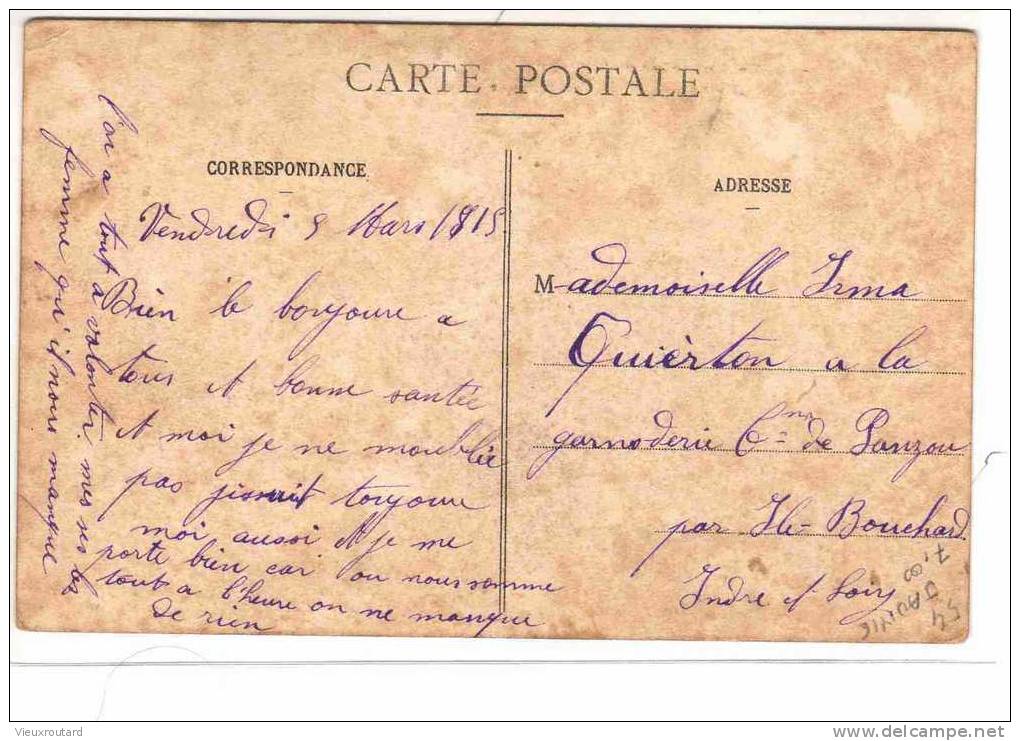 CARTE POSTALE
CORRESPONDANCE
Vendredi 5 Mars 1915
Bien le bonjoure a
tous et bonne santée
et moi je ne moublie
pas toujoure
moi aussi et je me
porte bien car ou nous somme
tout a l'heure on ne manque
de rien
l'on a tout a volonter mes ses les
femme qu'il nous manque
ADRESSE
Mademoiselle Irma
Quièrton a la
garnoderie Cne de Panzou
par Ile Bouchard
Indre et Loire
54
7.00
Vieuxroutard
delcampe.net